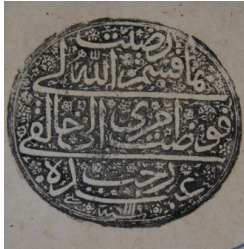 رضيت
بما قسم الله لي
وفوضت امري الى خالقي
عبده